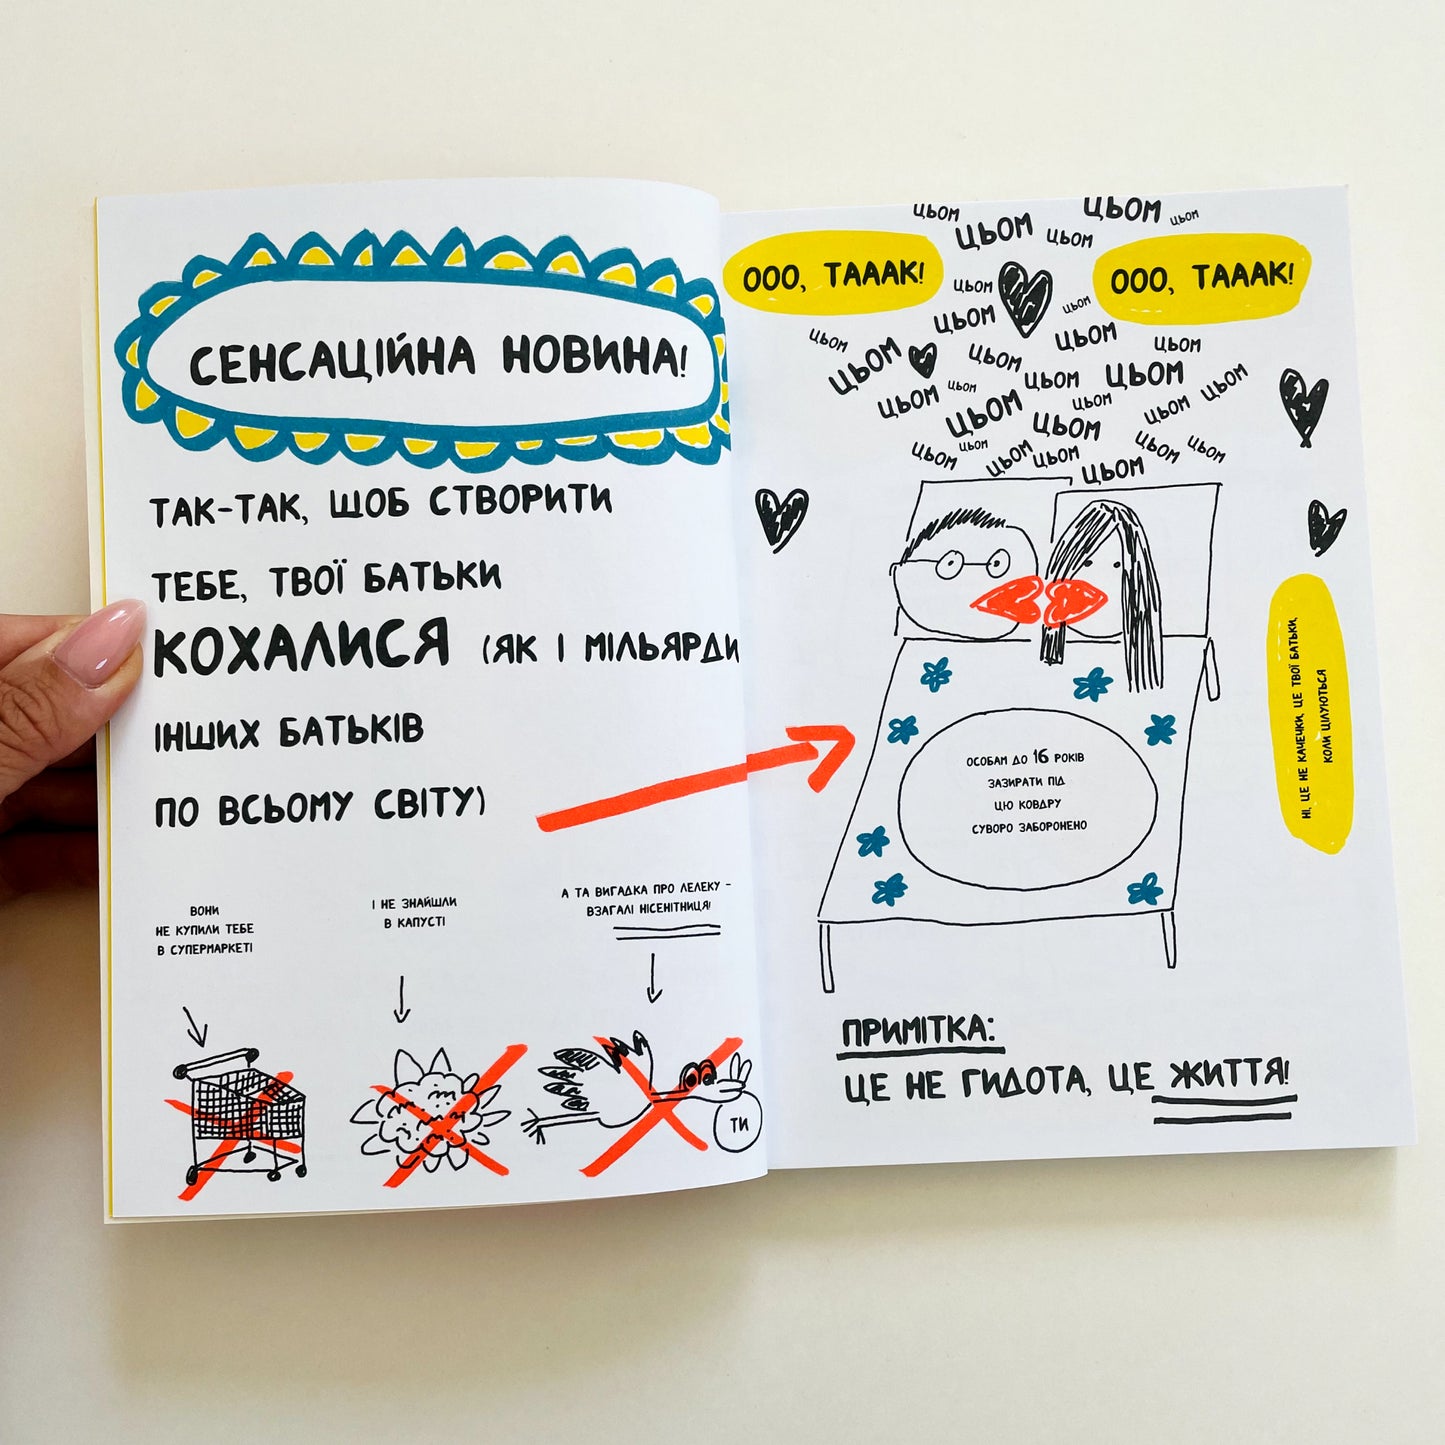 СЕНСАЦІЙНА НОВИНА!
ТАК-ТАК, ЩОБ СТВОРИТИ
ТЕБЕ, ТВОЇ БАТЬКИ
КОХАЛИСЯ (ЯК І МІЛЬЯРДИ
ІНШИХ БАТЬКІВ
ПО ВСЬОМУ СВІТУ)
ВОНИ
НЕ КУПИЛИ ТЕБЕ
В СУПЕРМАРКЕТІ
І НЕ ЗНАЙШЛИ
В КАПУСТІ
А ТА ВИГАДКА ПРО ЛЕЛЕКУ –
ВЗАГАЛІ НІСЕНІТНИЦЯ!
ТИ
ЦЬОМ ЦЬОМ ЦЬОМ
ЦЬОМ ЦЬОМ
ООО, ТАААК!
ООО, ТАААК!
ЦЬОМ ЦЬОМ
ЦЬОМ ЦЬОМ
ЦЬОМ ЦЬОМ ЦЬОМ ЦЬОМ
ЦЬОМ ЦЬОМ ЦЬОМ ЦЬОМ ЦЬОМ
ЦЬОМ ЦЬОМ ЦЬОМ ЦЬОМ
ЦЬОМ ЦЬОМ ЦЬОМ ЦЬОМ
ЦЬОМ ЦЬОМ ЦЬОМ
ОСОБАМ ДО 16 РОКІВ
ЗАЗИРАТИ ПІД
ЦЮ КОВДРУ
СУВОРО ЗАБОРОНЕНО
НІ, ЦЕ НЕ КАЧЕЧКИ, ЦЕ ТВОЇ БАТЬКИ,
КОЛИ ЦІЛУЮТЬСЯ
ПРИМІТКА:
ЦЕ НЕ ГИДОТА, ЦЕ ЖИТТЯ!